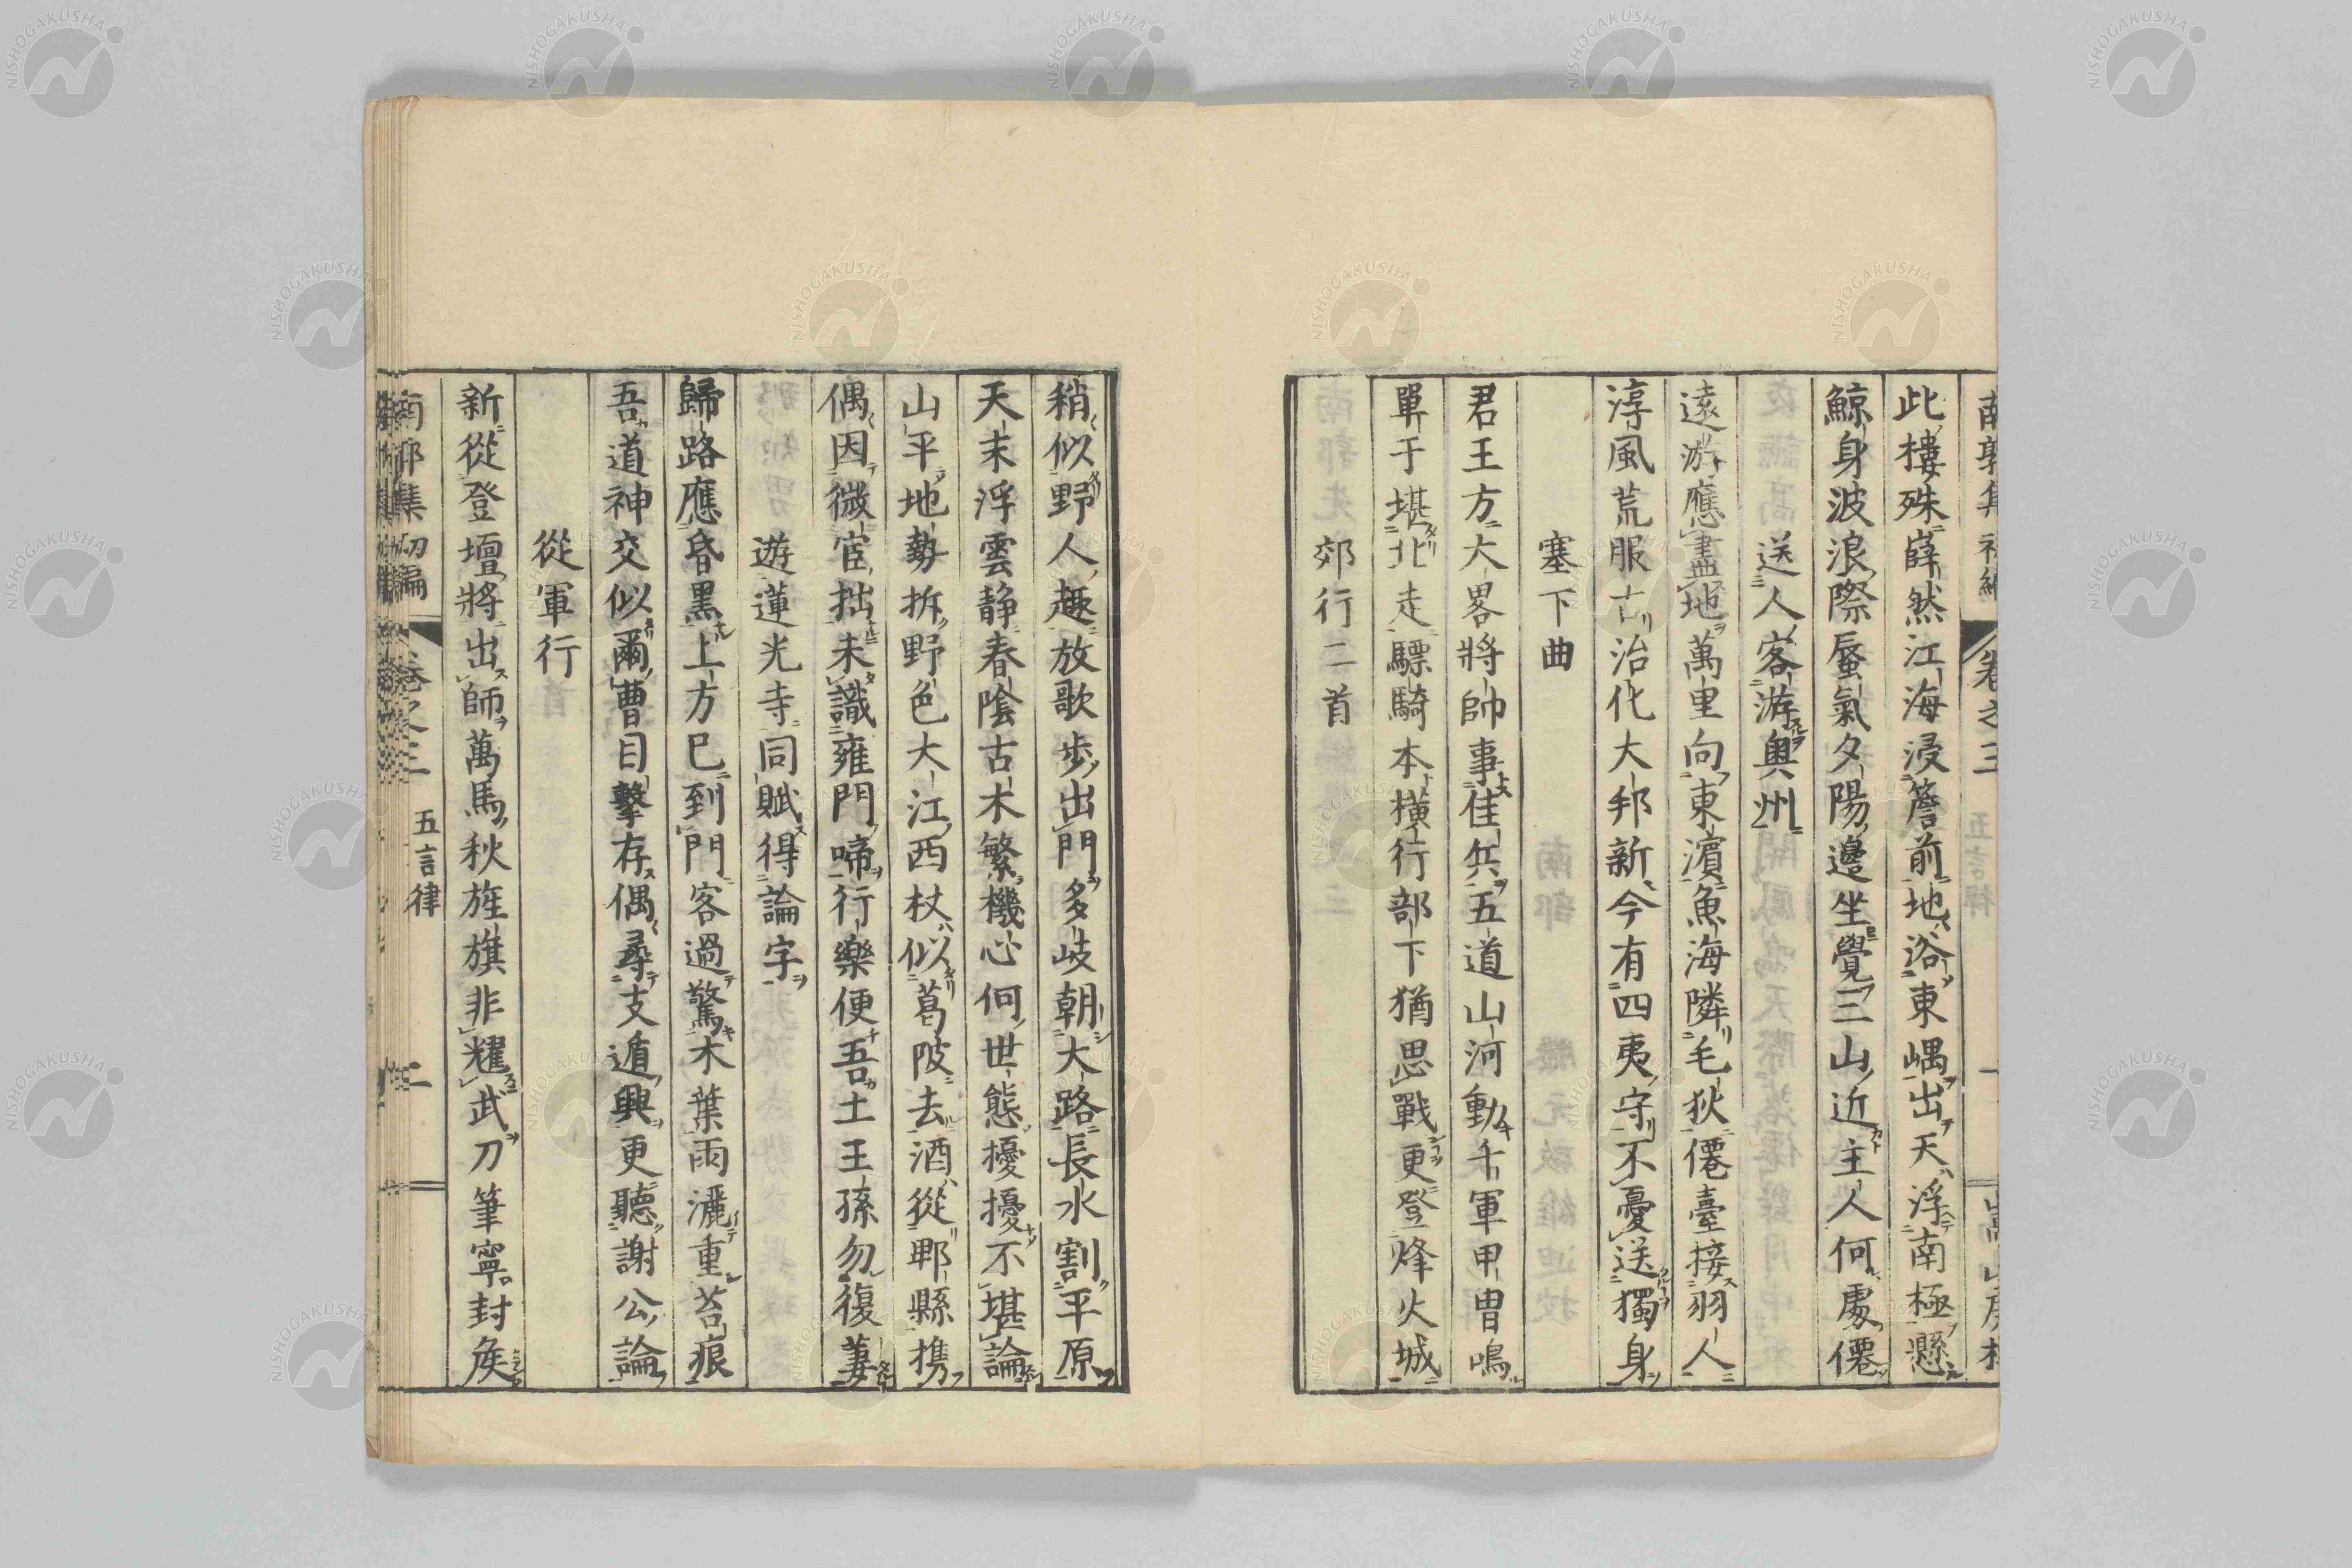 此樓殊嶭然江海浸簷前地浴東嵎出天浮南極懸
鯨身波浪際蜃氣夕陽邊坐覺三山近主人何處僊
送人客游奧州
遠游應盡地萬里向東濱魚海隣毛狄僊臺接羽人
淳風荒服古治化大邦新今有四夷守不憂送獨身
塞下曲
君王方大畧將帥事佳兵五道山河動千軍甲冑鳴
單于堪北走驃騎本橫行部下猶思戰更登烽火城
郊行二首
稍似野人趣放歌步出門多岐朝大路長水割平原
天末浮雲靜春陰古木繁機心何世態擾擾不堪論
山平地勢拆野色大江西杖似葛陂去酒從郫縣携
偶因微宦拙未識雍門啼行樂便吾土王孫勿復萋
遊蓮光寺同賦得論字
歸路應昏黑上方已到門客過驚木葉雨灑重苔痕
吾道神交似爾曹目擊存偶尋支遁興更聽謝公論
從軍行
新從登壇將出師萬馬秋旌旗非耀武刀筆寧封矦
南郭集初編 卷之三 五言律 二
NISHOGAKUSHA